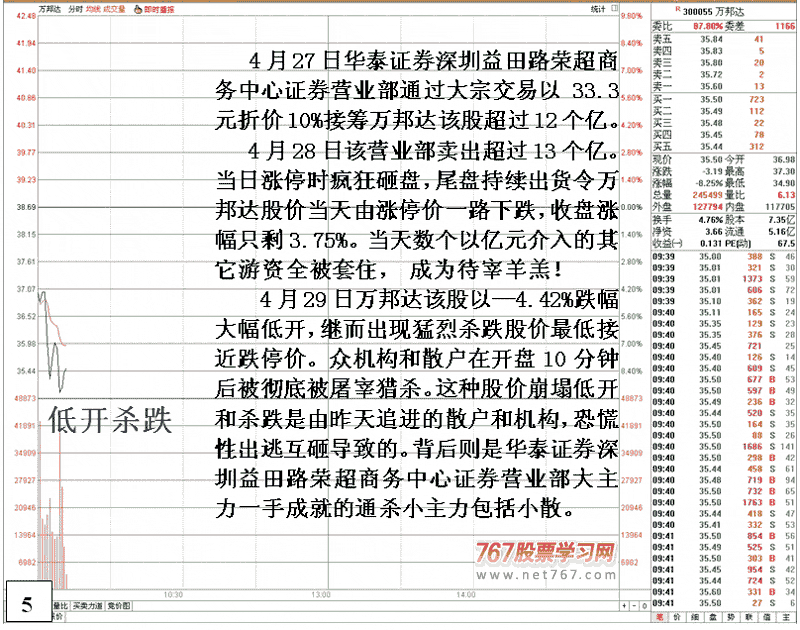 万邦达 分时 均线 成交量 即时播报 统计
R 300055 万邦达
42.48 9.80%
41.94
41.40 7.00%
40.86 5.60%
40.31 4.20%
39.77
39.23 1.40%
38.69 0.00%
38.15 1.40%
37.61 2.80%
37.07 4.20%
36.52 5.60%
35.98 7.00%
35.44 8.40%
48873 48873
41891 41891
34909 34909
27927 27927
20946 20946
13964 13964
6982 6982
10:30 13:00 14:00
4月27日华泰证券深圳益田路荣超商
务中心证券营业部通过大宗交易以 33.3
元折价10%接筹万邦达该股超过12个亿。
4月28日该营业部卖出超过13个亿。
当日涨停时疯狂砸盘,尾盘持续出货令万
邦达股价当天由涨停价一路下跌,收盘涨
幅只剩3.75%。当天数个以亿元介入的其
它游资全被套住， 成为待宰羊羔！
4月29日万邦达该股以—4.42%跌幅
大幅低开,继而出现猛烈杀跌股价最低接
近跌停价。众机构和散户在开盘10分钟
后被彻底被屠宰猎杀。这种股价崩塌低开
和杀跌是由昨天追进的散户和机构,恐慌
性出逃互砸导致的。背后则是华泰证券深
圳益田路荣超商务中心证券营业部大主
力一手成就的通杀小主力包括小散。
低开杀跌
767股票学习网
www.net767.com
5
量比 买卖力道 竞价图
委比 87.80% 委差 1166
卖五 35.84 41
卖四 35.83 5
卖三 35.80 20
卖二 35.72 2
卖一 35.60 13
买一 35.50 723
买二 35.49 112
买三 35.48 22
买四 35.45 78
买五 35.44 312
现价 35.50 今开 36.98
涨跌 -3.19 最高 37.30
涨幅 -8.25% 最低 34.90
总量 245499 量比 6.13
外盘 127794 内盘 117705
换手 4.76% 股本 7.35亿
净资 3.66 流通 5.16亿
收益㈠ 0.131 PE[动] 67.5
09:39 35.00 388 S 46
09:39 35.01 321 S 30
09:39 35.01 1373 S 59
09:39 35.01 606 S 72
09:39 35.10 362 S 19
09:40 35.11 165 S 24
09:40 35.35 129 S 23
09:40 35.35 376 S 28
09:40 35.45 721 25
09:40 35.40 126 S 14
09:40 35.40 609 S 45
09:40 35.50 677 B 53
09:40 35.50 597 B 49
09:40 35.49 236 B 32
09:40 35.44 520 S 35
09:40 35.50 164 S 35
09:40 35.50 88 S 26
09:40 35.50 1686 S 141
09:40 35.50 298 B 42
09:40 35.44 458 S 61
09:40 35.48 719 B 94
09:40 35.50 732 B 65
09:40 35.50 1763 B 51
09:40 35.44 418 S 47
09:40 35.41 332 S 53
09:41 35.50 854 B 56
09:41 35.49 525 S 51
09:41 35.50 303 B 41
09:41 35.45 954 S 42
09:41 35.44 724 S 52
09:41 35.60 331 B 34
09:41 35.50 27 S 6
笔 价 细 盘 势 联 值 主